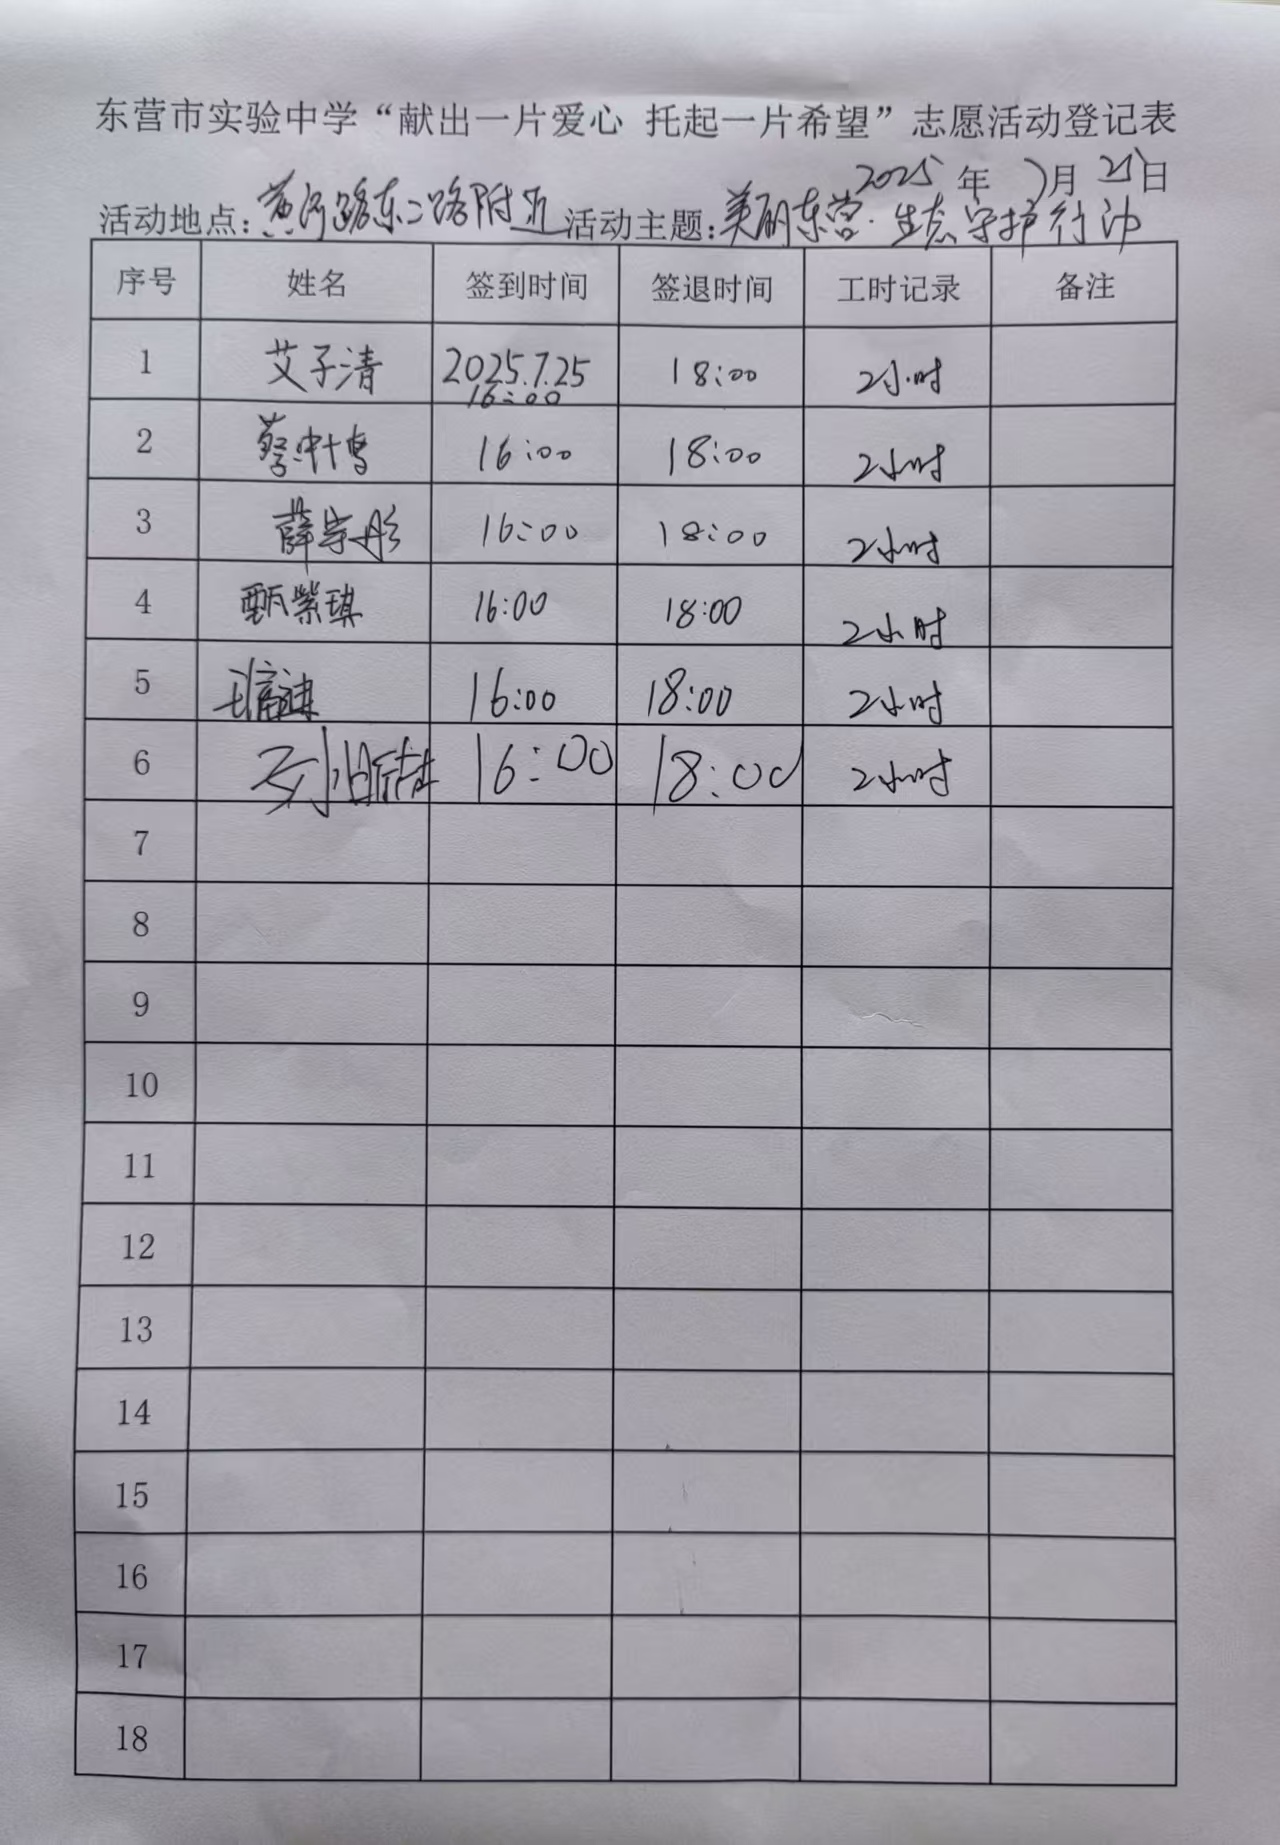 东营市实验中学“献出一片爱心 托起一片希望”志愿活动登记表
2025年 7月 25日
活动地点：黄河路东二路附近 活动主题：美丽东营·生态守护行动
序号 姓名 签到时间 签退时间 工时记录 备注
1 艾子清 2025.7.25 16:00 18:00 2小时
2 16:00 18:00 2小时
3 薛宗彤 16:00 18:00 2小时
4 甄紫琪 16:00 18:00 2小时
5 16:00 18:00 2小时
6 16:00 18:00 2小时
7
8
9
10
11
12
13
14
15
16
17
18